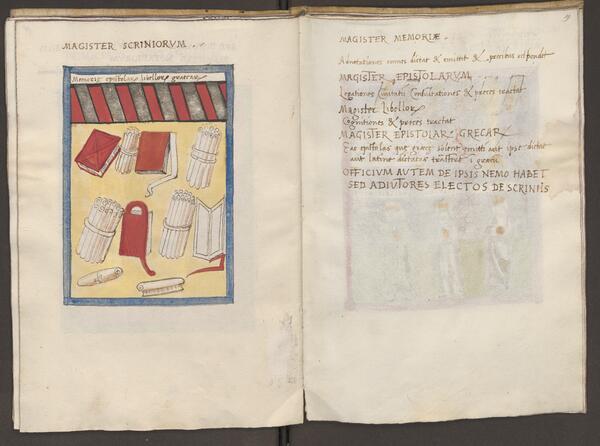 MAGISTER SCRINIORVM
Memorię epistolarũ libellorũ grecarũ
MAGISTER MEMORIÆ
Adnotationes omnes dictat & emittit & precibus respondet
MAGISTER EPISTOLARVM
Legationes Civitatũ Consultationes & preces tractat
Magister Libellorũ
Cognitiones & preces tractat
MAGISTER EPISTOLARṼ GRECARṼ
Eas epistolas que grece solent emitti aut ipse dictat
aut latine dictatas transfert ĩ grecũ
OFFICIVM AVTEM DE IPSIS NEMO HABET
SED ADIVTORES ELECTOS DE SCRINIIS